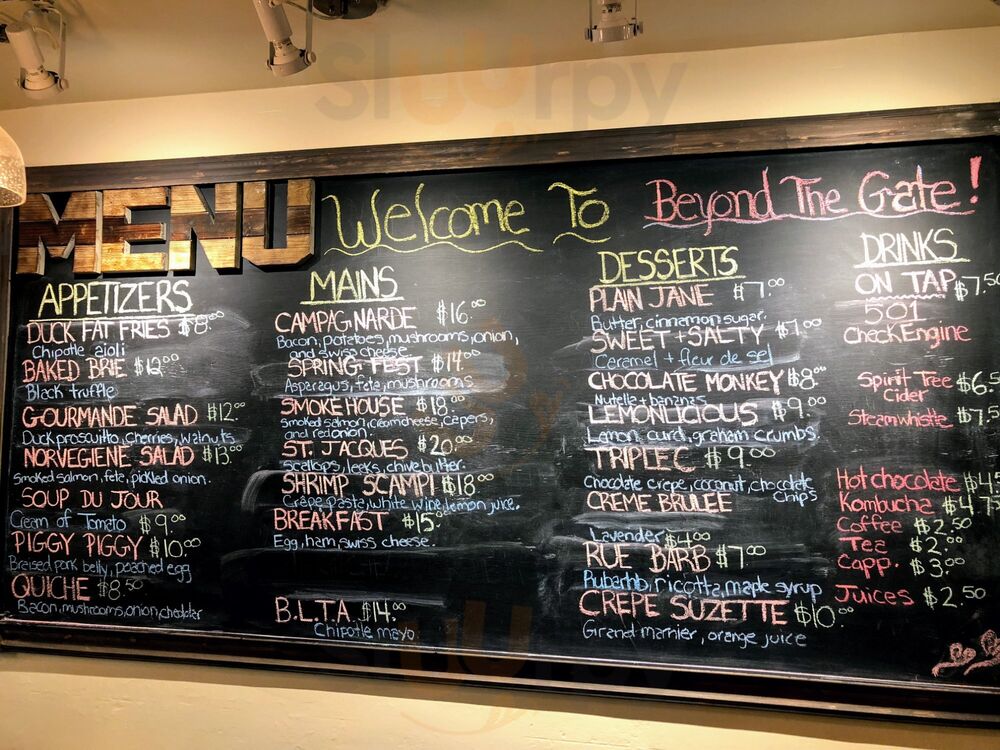 Sluurpy
MENU
Welcome To Beyond The Gate!
APPETIZERS
DUCK FAT FRIES $8.00
Chipotle aioli
BAKED BRIE $12.00
Black truffle
GOURMANDE SALAD $12.00
Duck prosciutto, cherries, walnuts
NORVEGIENE SALAD $13.00
Smoked salmon, feta, pickled onion.
SOUP DU JOUR
Cream of Tomato $9.00
PIGGY PIGGY $10.00
Breised pork belly, poached egg
QUICHE $8.50
Bacon, mushrooms, onion, cheddar
MAINS
CAMPAGNARDE $16.00
Bacon, potatoes, mushrooms, onion,
and swiss cheese.
SPRING FEST $14.00
Asparagus, feta, mushrooms
SMOKEHOUSE $18.00
Smoked salmon, creamcheese, capers,
and red onion.
ST. JACQUES $20.00
Scallops, leeks, chive butter.
SHRIMP SCAMPI $18.00
Crêpe pasta, white wine, lemon juice.
BREAKFAST $15.00
Egg, ham, swiss cheese.
B.L.T.A. $14.00
Chipotle mayo
DESSERTS
PLAN JANE $7.00
Butter, cinnamon sugar.
SWEET + SALTY $7.00
Ceramel + fleur de sel
CHOCOLATE MONKEY $8.00
Nutella + bananas
LEMONLICIOUS $9.00
Lemon curd, graham crumbs.
TRIPLE C $9.00
Chocolate crepe, coconut, chocolate
chips
CREME BRULEE
Lavender $4.00
RUE BARB $7.00
Rubarhb, ricotta, maple syrup
CREPE SUZETTE $10.00
Grand marnier, orange juice
DRINKS
ON TAP $7.50
501
Check Engine
Spirit Tree $6.5
Cider
Steamwhistle $7.5
Hot chocolate $4.5
Kombucha $4.75
Coffee $2.50
Tea $2.00
Capp. $3.00
Juices $2.50